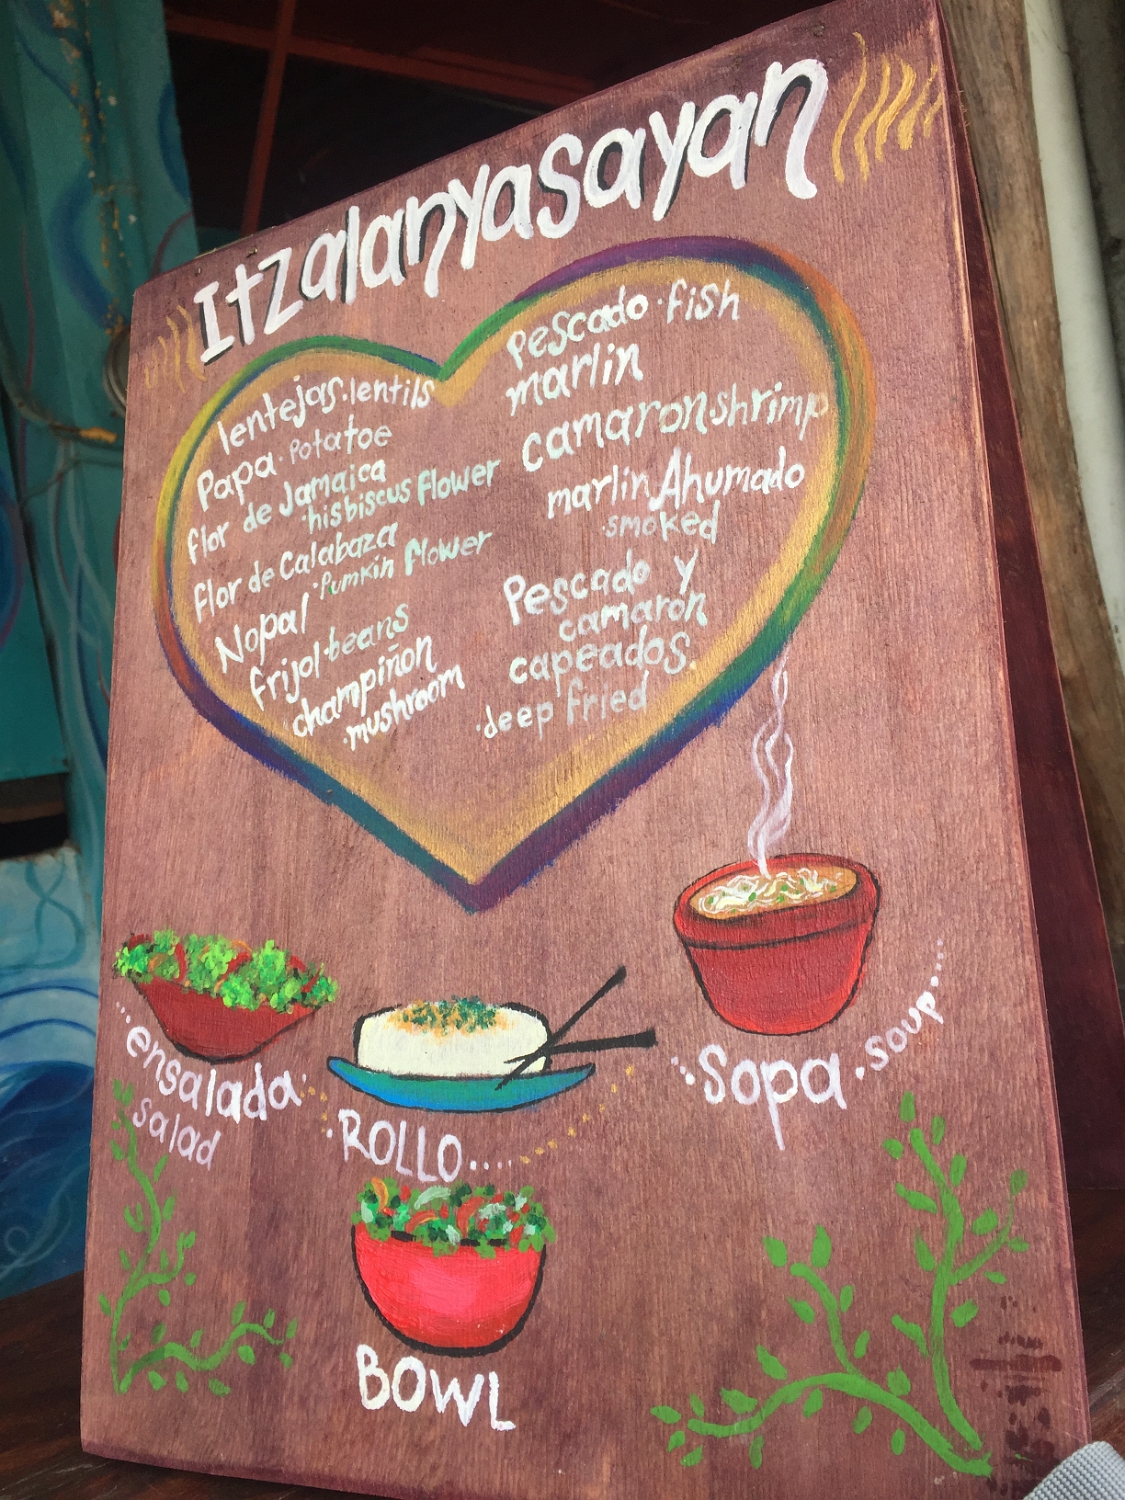 Itzalanyasayan
lentejas·lentils
Papa·Potatoe
flor de Jamaica
·hisbiscus flower
flor de Calabaza
·Pumkin flower
Nopal
frijol·beans
champiñon
·mushroom
Pescado·fish
marlin
camaron·shrimp
marlin Ahumado
·smoked
Pescado y
camaron
capeados.
·deep fried
ensalada
salad
ROLLO....
Sopa·soup
BOWL